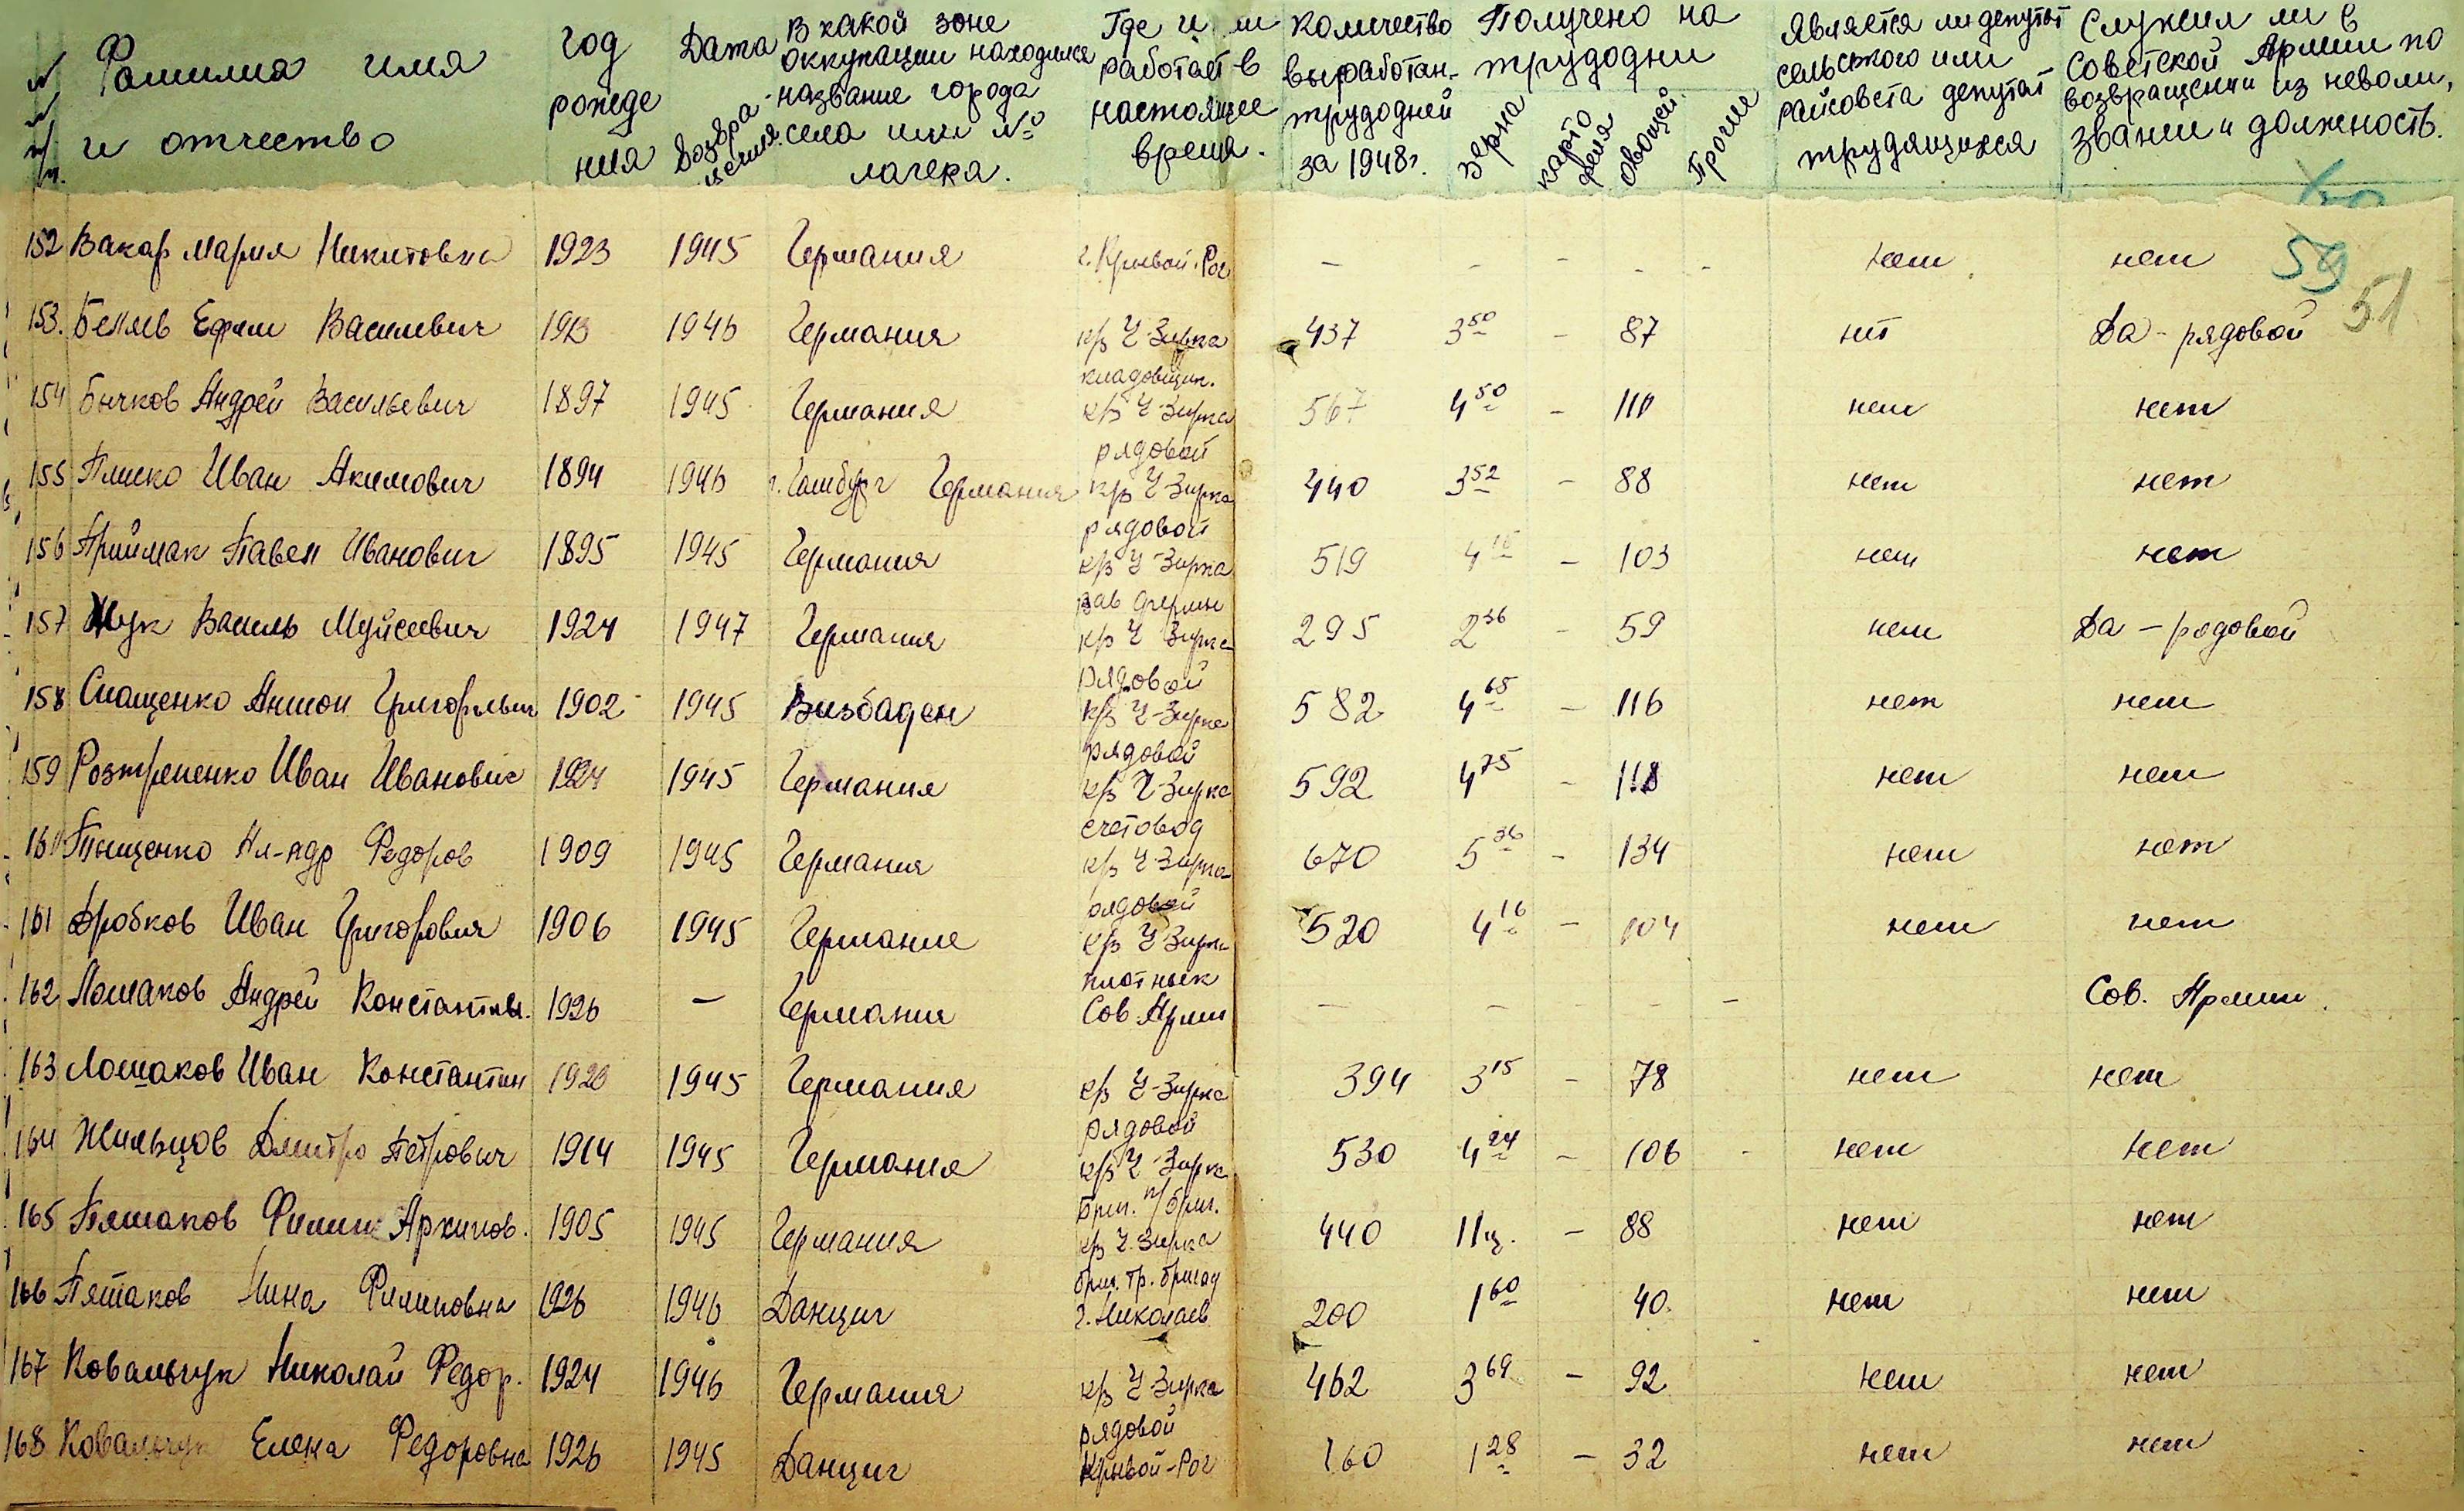 № п/п. Фамилия имя и отчество
год рождения
Дата возвращения
В какой зоне оккупации находился название города села или № лагеря.
Где и работает в настоящее время.
Количество выработан. трудодней за 1948 г.
Получено на трудодни
зерна картофеля овощей Прочие
Является ли депутат сельского или райсовета депутат трудящихся
Служил ли в Советской Армии по возвращении из неволи, звании и должность.
59 51
152 Вакар Мария Никитовна 1923 1945 Германия г. Кривой-Рог – – – – – нет нет
153. Беляев Ефим Василевич 1913 1946 Германия к/з Ч-Зирка 437 3 50 – 87 нет Да - рядовой
кладовщик.
154 Бычков Андрей Васильевич 1897 1945 Германия к/з Ч-Зирка 567 4 50 – 110 нет нет
рядовой
155 Плиско Иван Акимович 1894 1946 г. Гамбург Германия к/з Ч-Зирка 440 3 52 – 88 нет нет
рядовой
156 Приймак Павел Иванович 1895 1945 Германия к/з Ч-Зирка 519 4 15 – 103 нет нет
зав фермы
157 Жук Василь Муйсеевич 1924 1947 Германия к/з Ч Зирка 295 2 36 – 59 нет Да – рядовой
рядовой
158 Антон Григорьевич 1902 1945 Визбаден к/з Ч-Зирка 582 4 65 – 116 нет нет
рядовой
159 Иван Иванович 1924 1945 Германия к/з Ч-Зирка 592 4 75 – 118 нет нет
счетовод
160 Ал-андр Федоров 1909 1945 Германия к/з Ч-Зирка 670 5 36 – 134 нет нет
рядовой
161 Дробков Иван Григорович 1906 1945 Германие к/з Ч-Зирка 520 4 16 – 104 нет нет
плотнык
162 Лошаков Андрей Константин. 1926 – Германия Сов Армии – – – – Сов. Армии.
163 Лошаков Иван Константин 1923 1945 Германия к/з Ч-Зирка 394 3 15 – 78 нет нет
рядовой
164 Жильцов Дмитро Петрович 1914 1945 Германия к/з Ч-Зирка 530 4 24 – 106 - нет нет
бриг. п/бриг.
165 Пятаков Филип Архипов. 1905 1945 Германия к/з Ч-Зирка 440 11ц. – 88 нет нет
бриг. тр. бригад
166 Пятаков Нина Филиповна 1926 1946 Данциг г. Николаев 200 1 60 40. нет нет
167 Ковальчук Николай Федор. 1924 1946 Германия к/з Ч-Зирка 462 3 69 – 92 нет нет
рядовой
168 Ковальчук Елена Федоровна 1926 1945 Данциг Крывой-Рог 160 1 28 – 32 нет нет